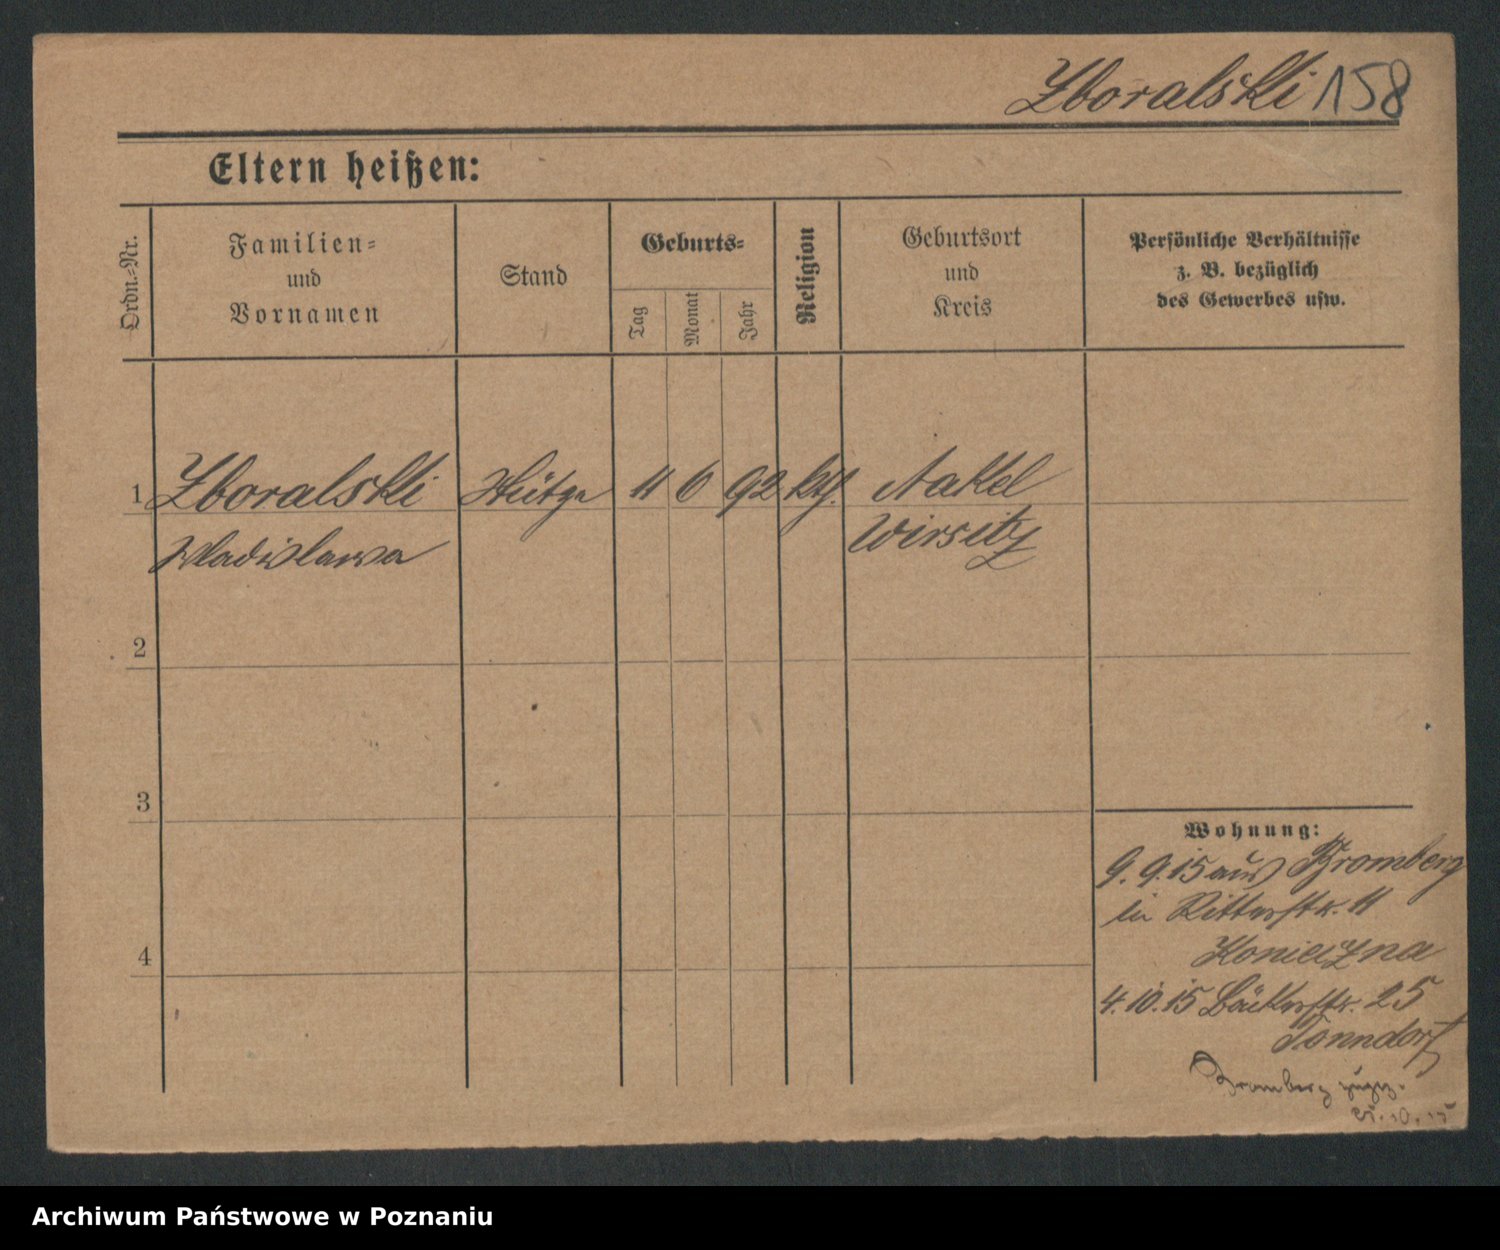 Zboralski 158
Eltern heißen:
Ordn.-Nr.
Familien-
und
Vornamen
Stand
Geburts-
Tag
Monat
Jahr
Religion
Geburtsort
und
Kreis
Persönliche Verhältnisse
z. B. bezüglich
des Gewerbes usw.
1 Zboralski 11 6 92 kth. Nakel
Wladislawa Wirsitz
2
3
4
Wohnung:
9. 9. 15 aus Bromberg
in Ritterstr. 11
Konieczna
4. 10. 15 Bäckerstr. 25
Tonndorf
Bromberg
10. 15
Archiwum Państwowe w Poznaniu